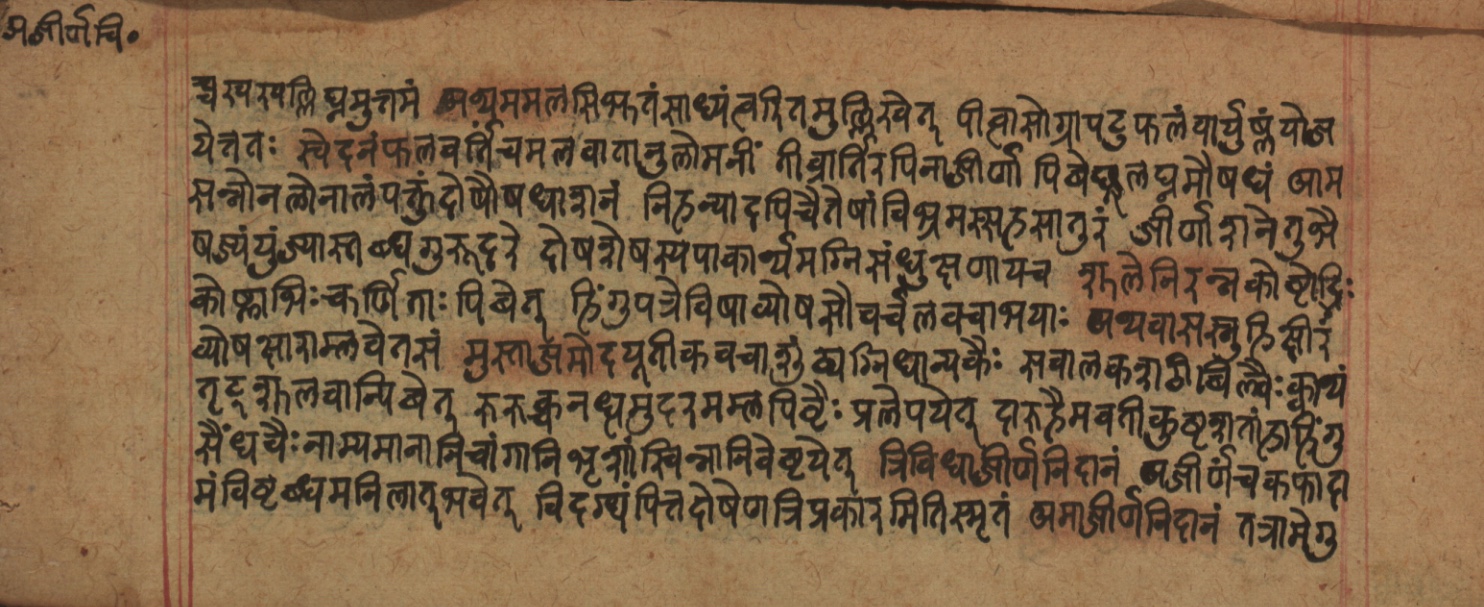 अजीर्णचि॰
च्चरयरयल्लिघ्नमुत्तमं अथामममलसिभूतंसाध्यंत्वरितमुल्लिखेत् पीत्वासोग्रापटुफलंवार्युष्णंयोज
येत्ततः स्वेदनंफलवर्तिचमलवातानुलोमनीं तीव्रार्तिरपिनाजीर्णी पिबेच्छूलघ्नमौषधं आम
सन्नोनलोनालंपक्तुंदोषौषधाशनं निहन्यादपिचैतेषांविभ्रमस्सहसातुरं जीर्णाशनेतुभै
षज्यंयुंज्यास्तब्धगुरूदरे दोषशेषस्यपाकार्थमग्निसंधुक्षणायच शूलेनिरन्नकोष्ठोद्भिः
कोष्णाभिःचूर्णिताः पिबेत् हिंगुपत्रैविषाव्योषसौवर्चलवचाभयाः अथवासस्नुहिक्षीरं
व्योषसाराम्लवेतसं मुस्ताजमोदपूतीकवचाशुंठ्यग्निधान्यकैः सवालकशठीबिल्वैःक्वाथं
तृट्शूलवान्पिबेत् रुरुक्चनध्ममुदरमम्लपिष्टैः प्रलेपयेत् दारुहैमवतीकुष्ठशताह्वाहिंगु
सैंधवैःनाम्यमानानिचांगानिभृशंस्विन्नानिवेष्टयेत् त्रिविधाजीर्णनिदानं अजीर्णंचकफादा
मंविष्टब्धमनिलात्भवेत् विदग्धंपित्तदोषेणत्रिप्रकारमितिस्मृतं अमाजीर्णनिदानं तत्रामेगु